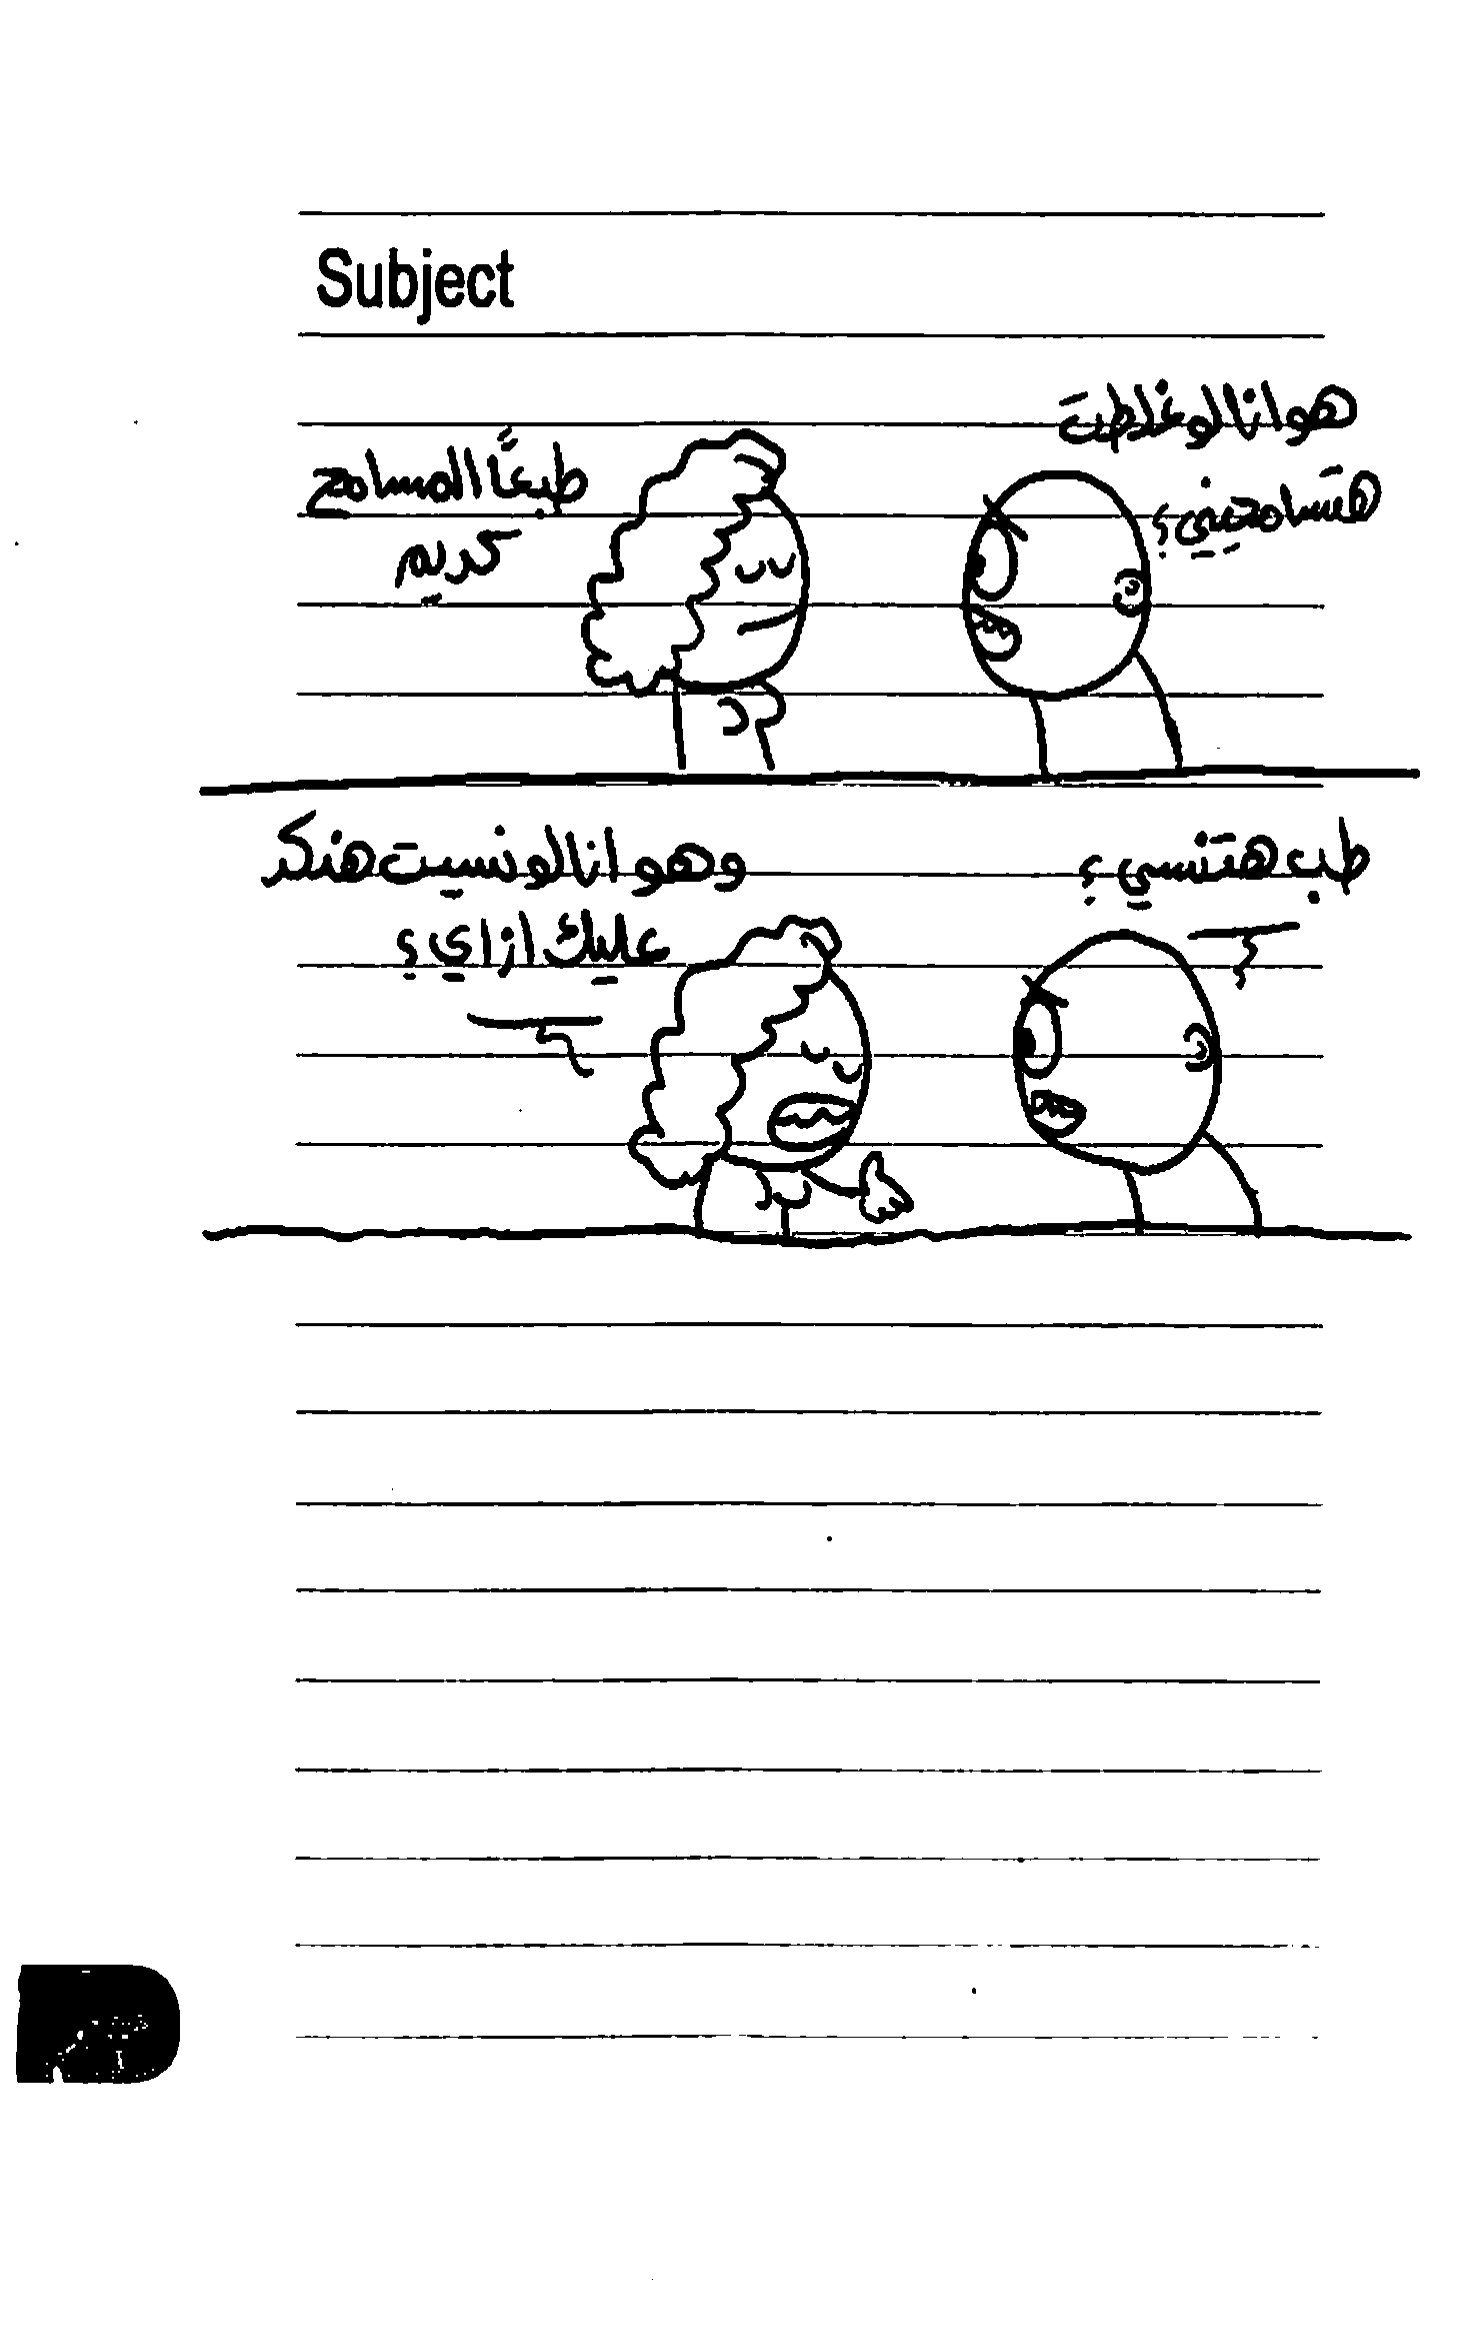 Subject
هو انا لو غلطت
هتسامحيني؟
طبعًا المسامح
كريم
طب هتنسي؟
وهو انا لو نسيت هنكر
عليك ازاي؟